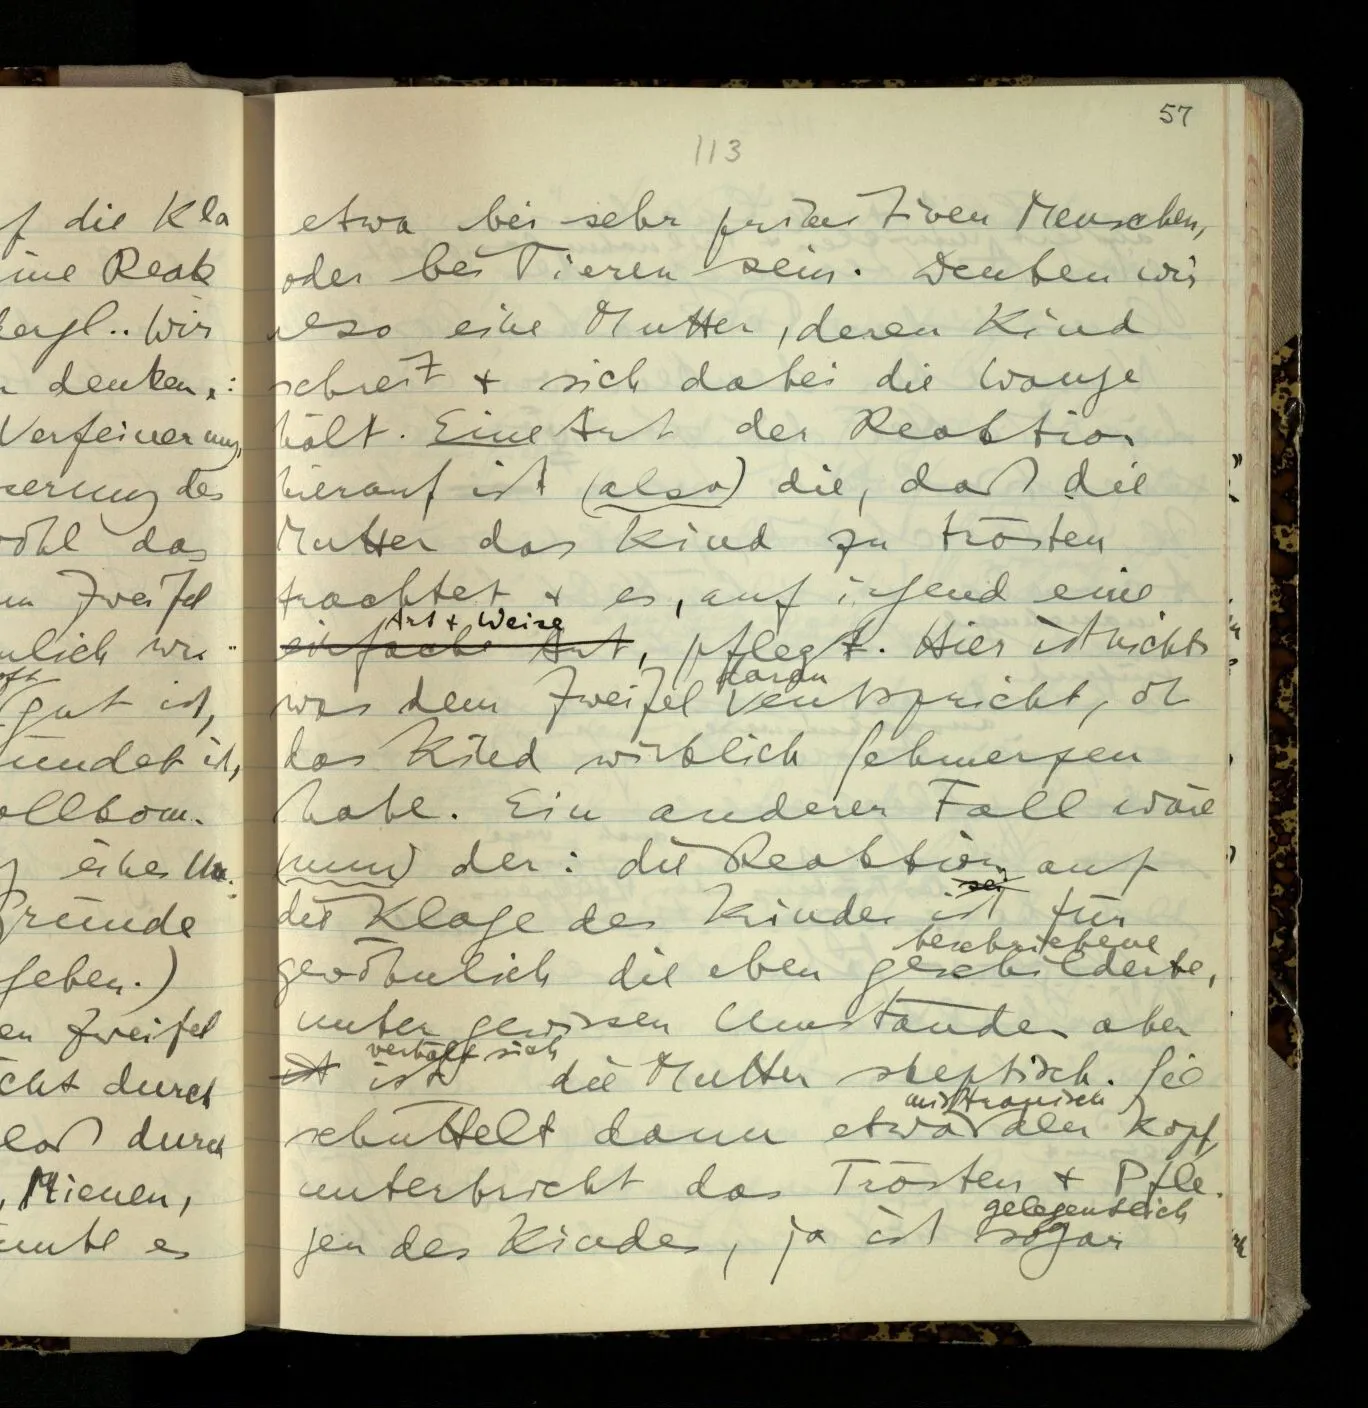 f die Kla
ine Reak
dergl.. Wir
denken,:
Verfeinerung,
serung des
wohl das
Zweifel
nlich wu..
oft
gut ist,
ründet ist,
ollkom-
eines Un-
Gründe
geben.)
en Zweifel
cht durch
loß durch
, Mienen,
önnte es
57
113
etwa bei sehr primitiven Menschen,
oder bei Tieren sein. Denken wir
also eine Mutter, deren Kind
schreit + sich dabei die Wange
hält. Eine Art der Reaktion
hierauf ist (also) die, daß die
Mutter das Kind zu trösten
trachtet + es, auf irgend eine
Art + Weise
einfache Art, pflegt. Hier ist nichts
daran
was dem Zweifel entspricht, ob
das Kind wirklich Schmerzen
habe. Ein anderer Fall wäre
(nun) der: die Reaktion auf
sei
die Klage des Kindes ist für
beschriebene
gewöhnlich die eben geschilderte,
unter gewissen Umständen aber
verhält sich
ist ist die Mutter skeptisch. Sie
mißtrauisch
schüttelt dann etwa den Kopf,
unterbricht das Trösten + Pfle-
gelegentlich
gen des Kindes, ja ist sogar